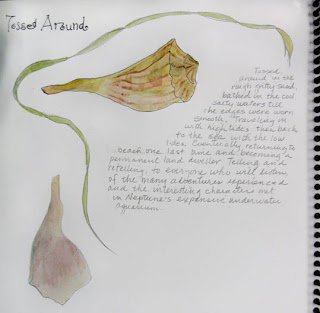 Tossed Around
Tossed
around in the
rough gritty sand,
bathed in the cool
salty waters till
the edges were worn
smooth. Traveling in
with high tides then back
to the sea with the low
tides. Eventually returning to
beach one last time and becoming a
permanent land dweller. Telling and
retelling, to everyone who will listen,
of the many adventures experienced
and the interesting characters met
in Neptune's expansive underwater
aquarium.